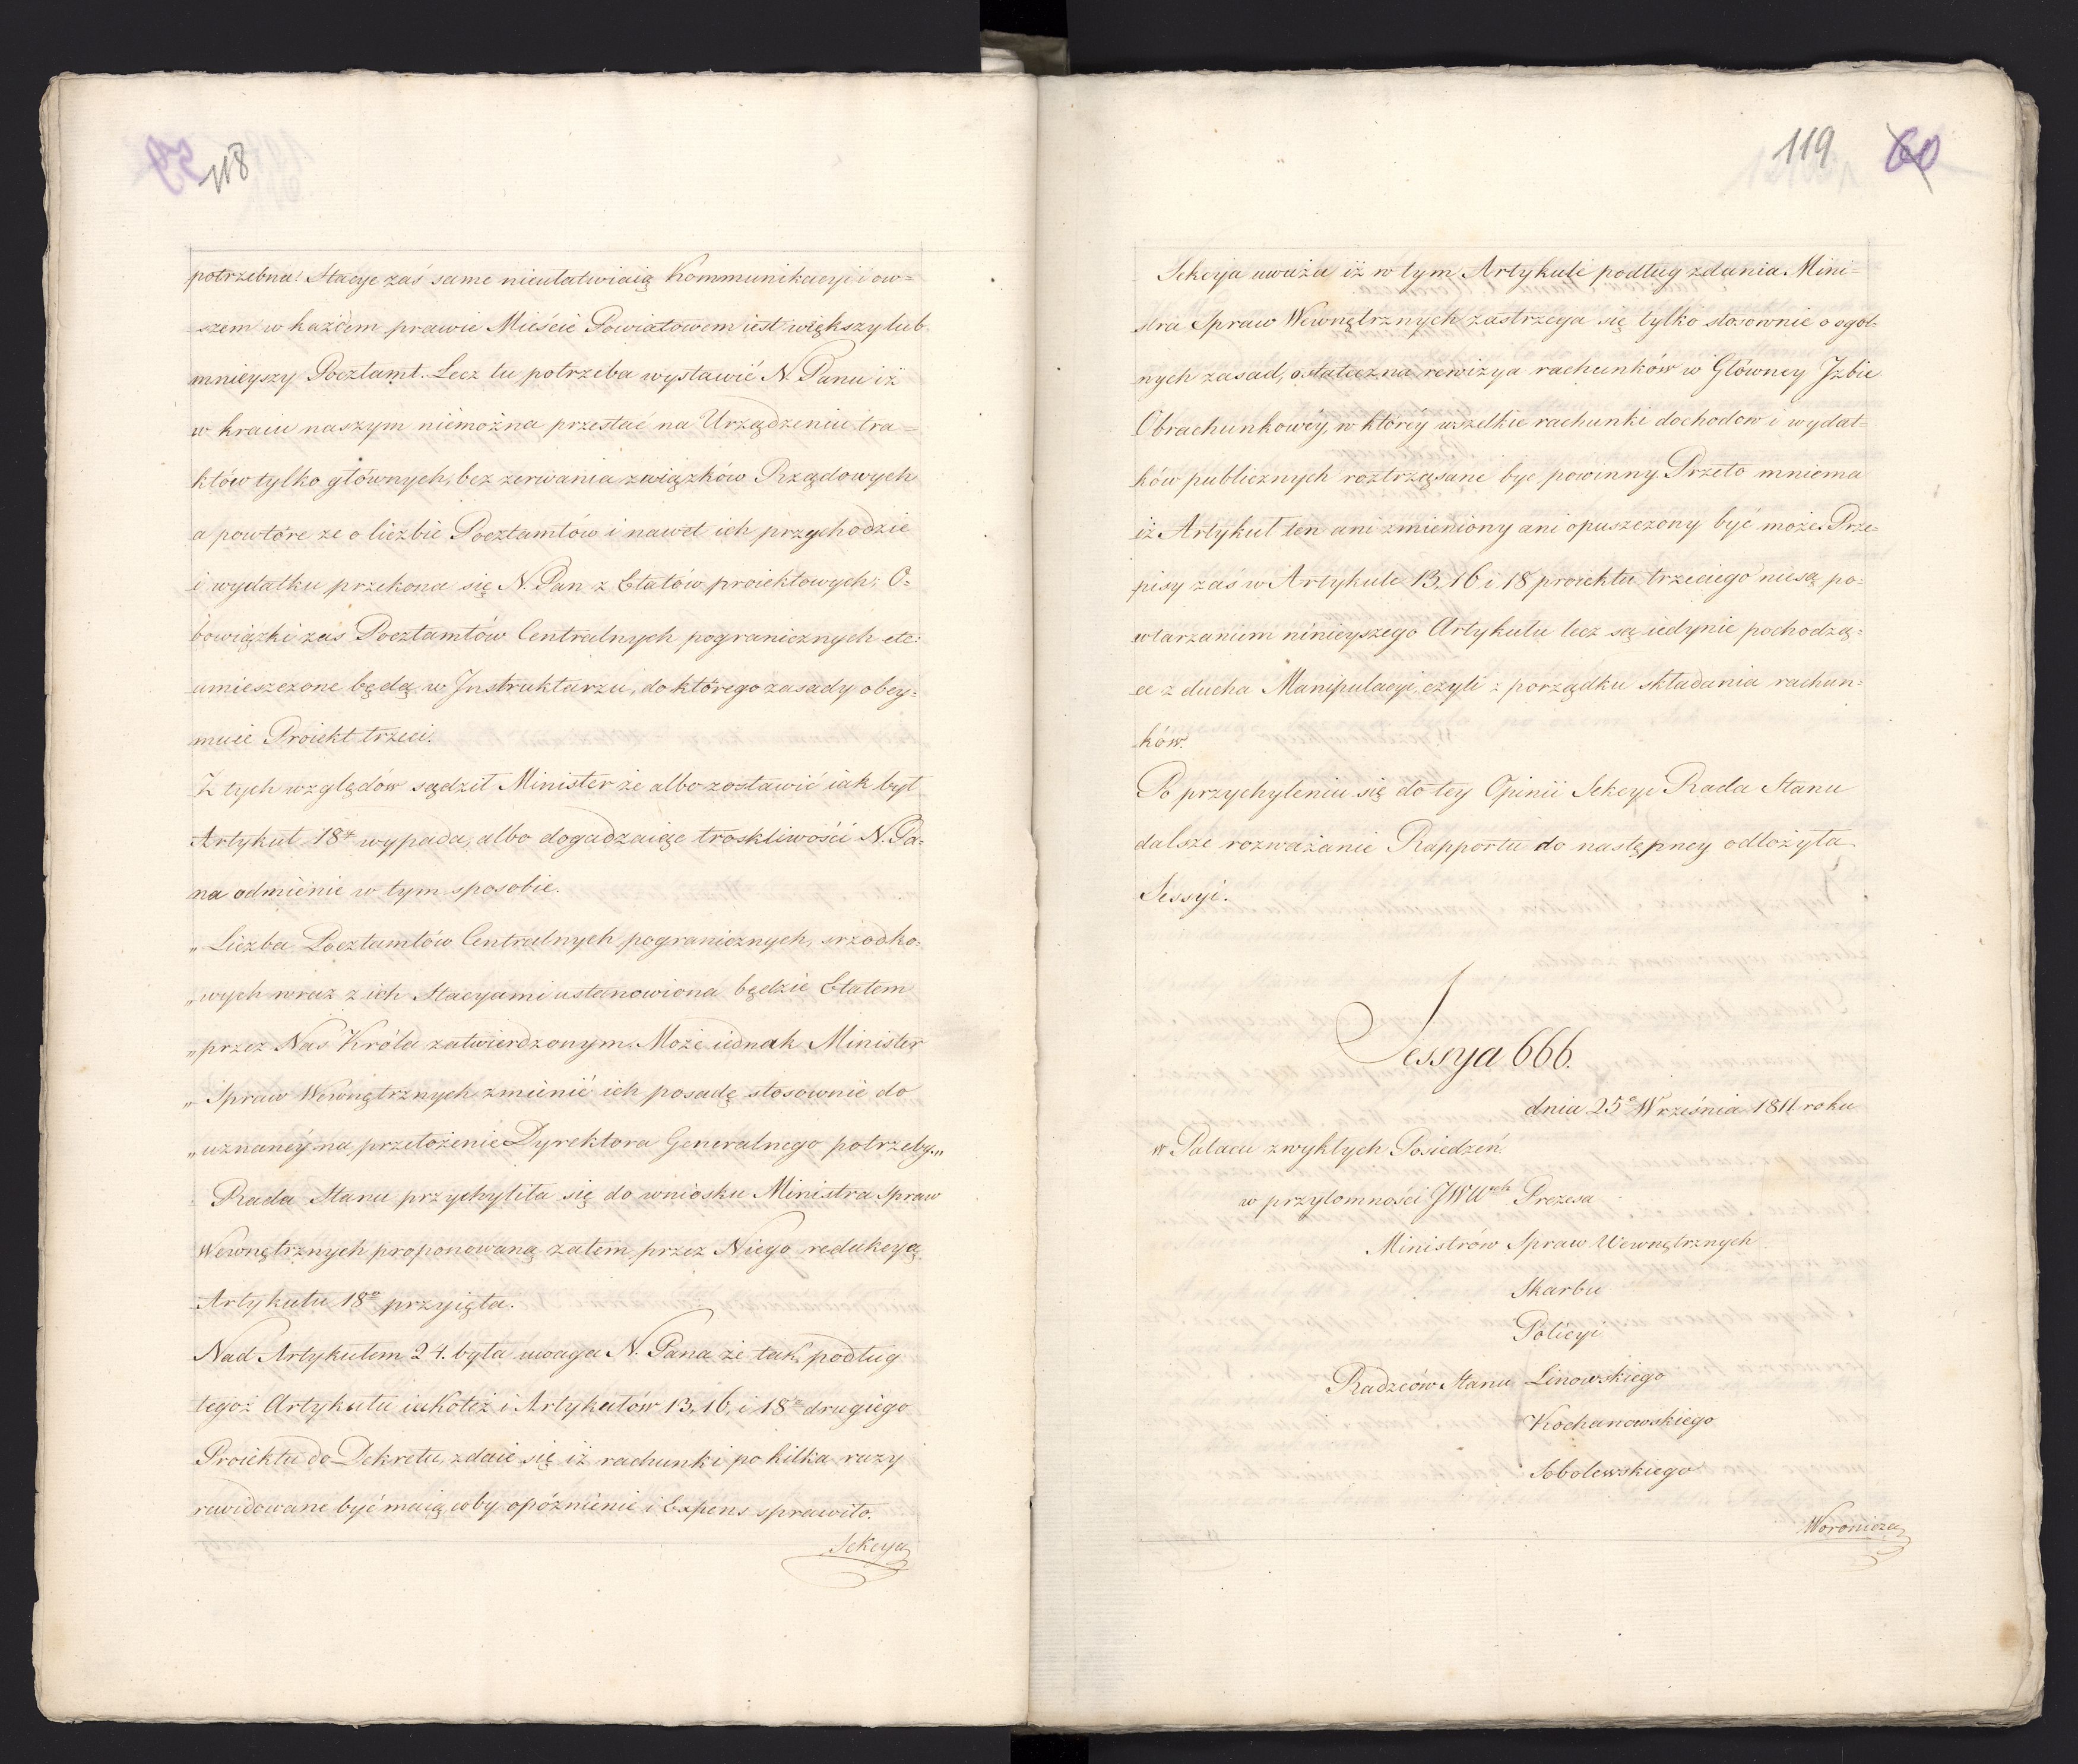 118
potrzebna. Stacye zaś same nieułatwiaią Kommunikacyi i ow=
szem w każdem prawie Mieście Powiatowem iest większy lub
mnieyszy Pocztamt. Lecz tu potrzeba wystawić N. Panu iż
w kraiu naszym niemożna przestać na Urządzeniu tra=
któw tylko głównych, bez zerwania związków Rządowych
a powtóre ze o liczbie Pocztamtów i nawet ich przychodzie
i wydatku przekona się N. Pan z Etatów proiektowych; O=
bowiązki zas Pocztamtów Centralnych pogranicznych etc:
umieszczone będą w Instruktarzu, do którego zasady obey=
muie Proiekt trzeci.
Z tych względów sądził Minister że albo zostawić iak był
Artykuł 18ty wypada, albo dogadzaiąc troskliwości N. Pa=
na odmienić w tym sposobie.
„Liczba Pocztamtów Centralnych pogranicznych, srzodko=
„wych wraz z ich Stacyami ustanowiona będzie Etatem
„przez Nas Króla zatwierdzonym. Może iednak Minister
„Spraw Wewnętrznych zmienić ich posadę stosownie do
„uznaney na przełożenie Dyrektora Generalnego potrzeby.„
Rada Stanu przychyliła się do wniosku Ministra Spraw
Wewnętrznych proponowaną zatem przez Niego redakcyą
Artykułu 18o przyięła.
Nad Artykułem 24. była uwaga N. Pana że tak podług
tegoż Artykułu iakoteż i Artykułów 13, 16, i 18go drugiego
Proiektu do Dekretu, zdaie się iż rachunki po kilka razy
rewidowane być maią coby opóźnienie i Expens sprawiło.
Sekcya
119
60
Sekcya uważa iż w tym Artykule podług zdania Mini=
stra Spraw Wewnętrznych zastrzega się tylko stosownie o ogol=
nych zasad, ostateczna rewizya rachunków w Główney Izbie
Obrachunkowéy, w któréy wszelkie rachunki dochodow i wydat=
ków publicznych roztrząsane byc powinny. Przeto mniema
iż Artykuł ten ani zmieniony ani opuszczony być może. Prze=
pisy zaś w Artykule 13, 16 i 18 proiektu trzeciego niesą po=
wtarzaniem ninieyszego Artykułu lecz są iedynie pochodzą=
ce z ducha Manipulacyi, czyli z porządku składania rachun=
ków.
Po przychyleniu się do tey Opinii Sekcyi Rada Stanu
dalsze rozważanie Rapportu do następney odłożyła
Sessyi.
Sessya 666.
dnia 25o Września 1811 roku
w Pałacu zwykłych Posiedzeń.
w przytomności JWWch Prezesa
Ministrów Spraw Wewnętrznych
Skarbu
Policyi
Radzców Stanu Linowskiego
Kochanowskiego
Sobolewskiego
Woronicza